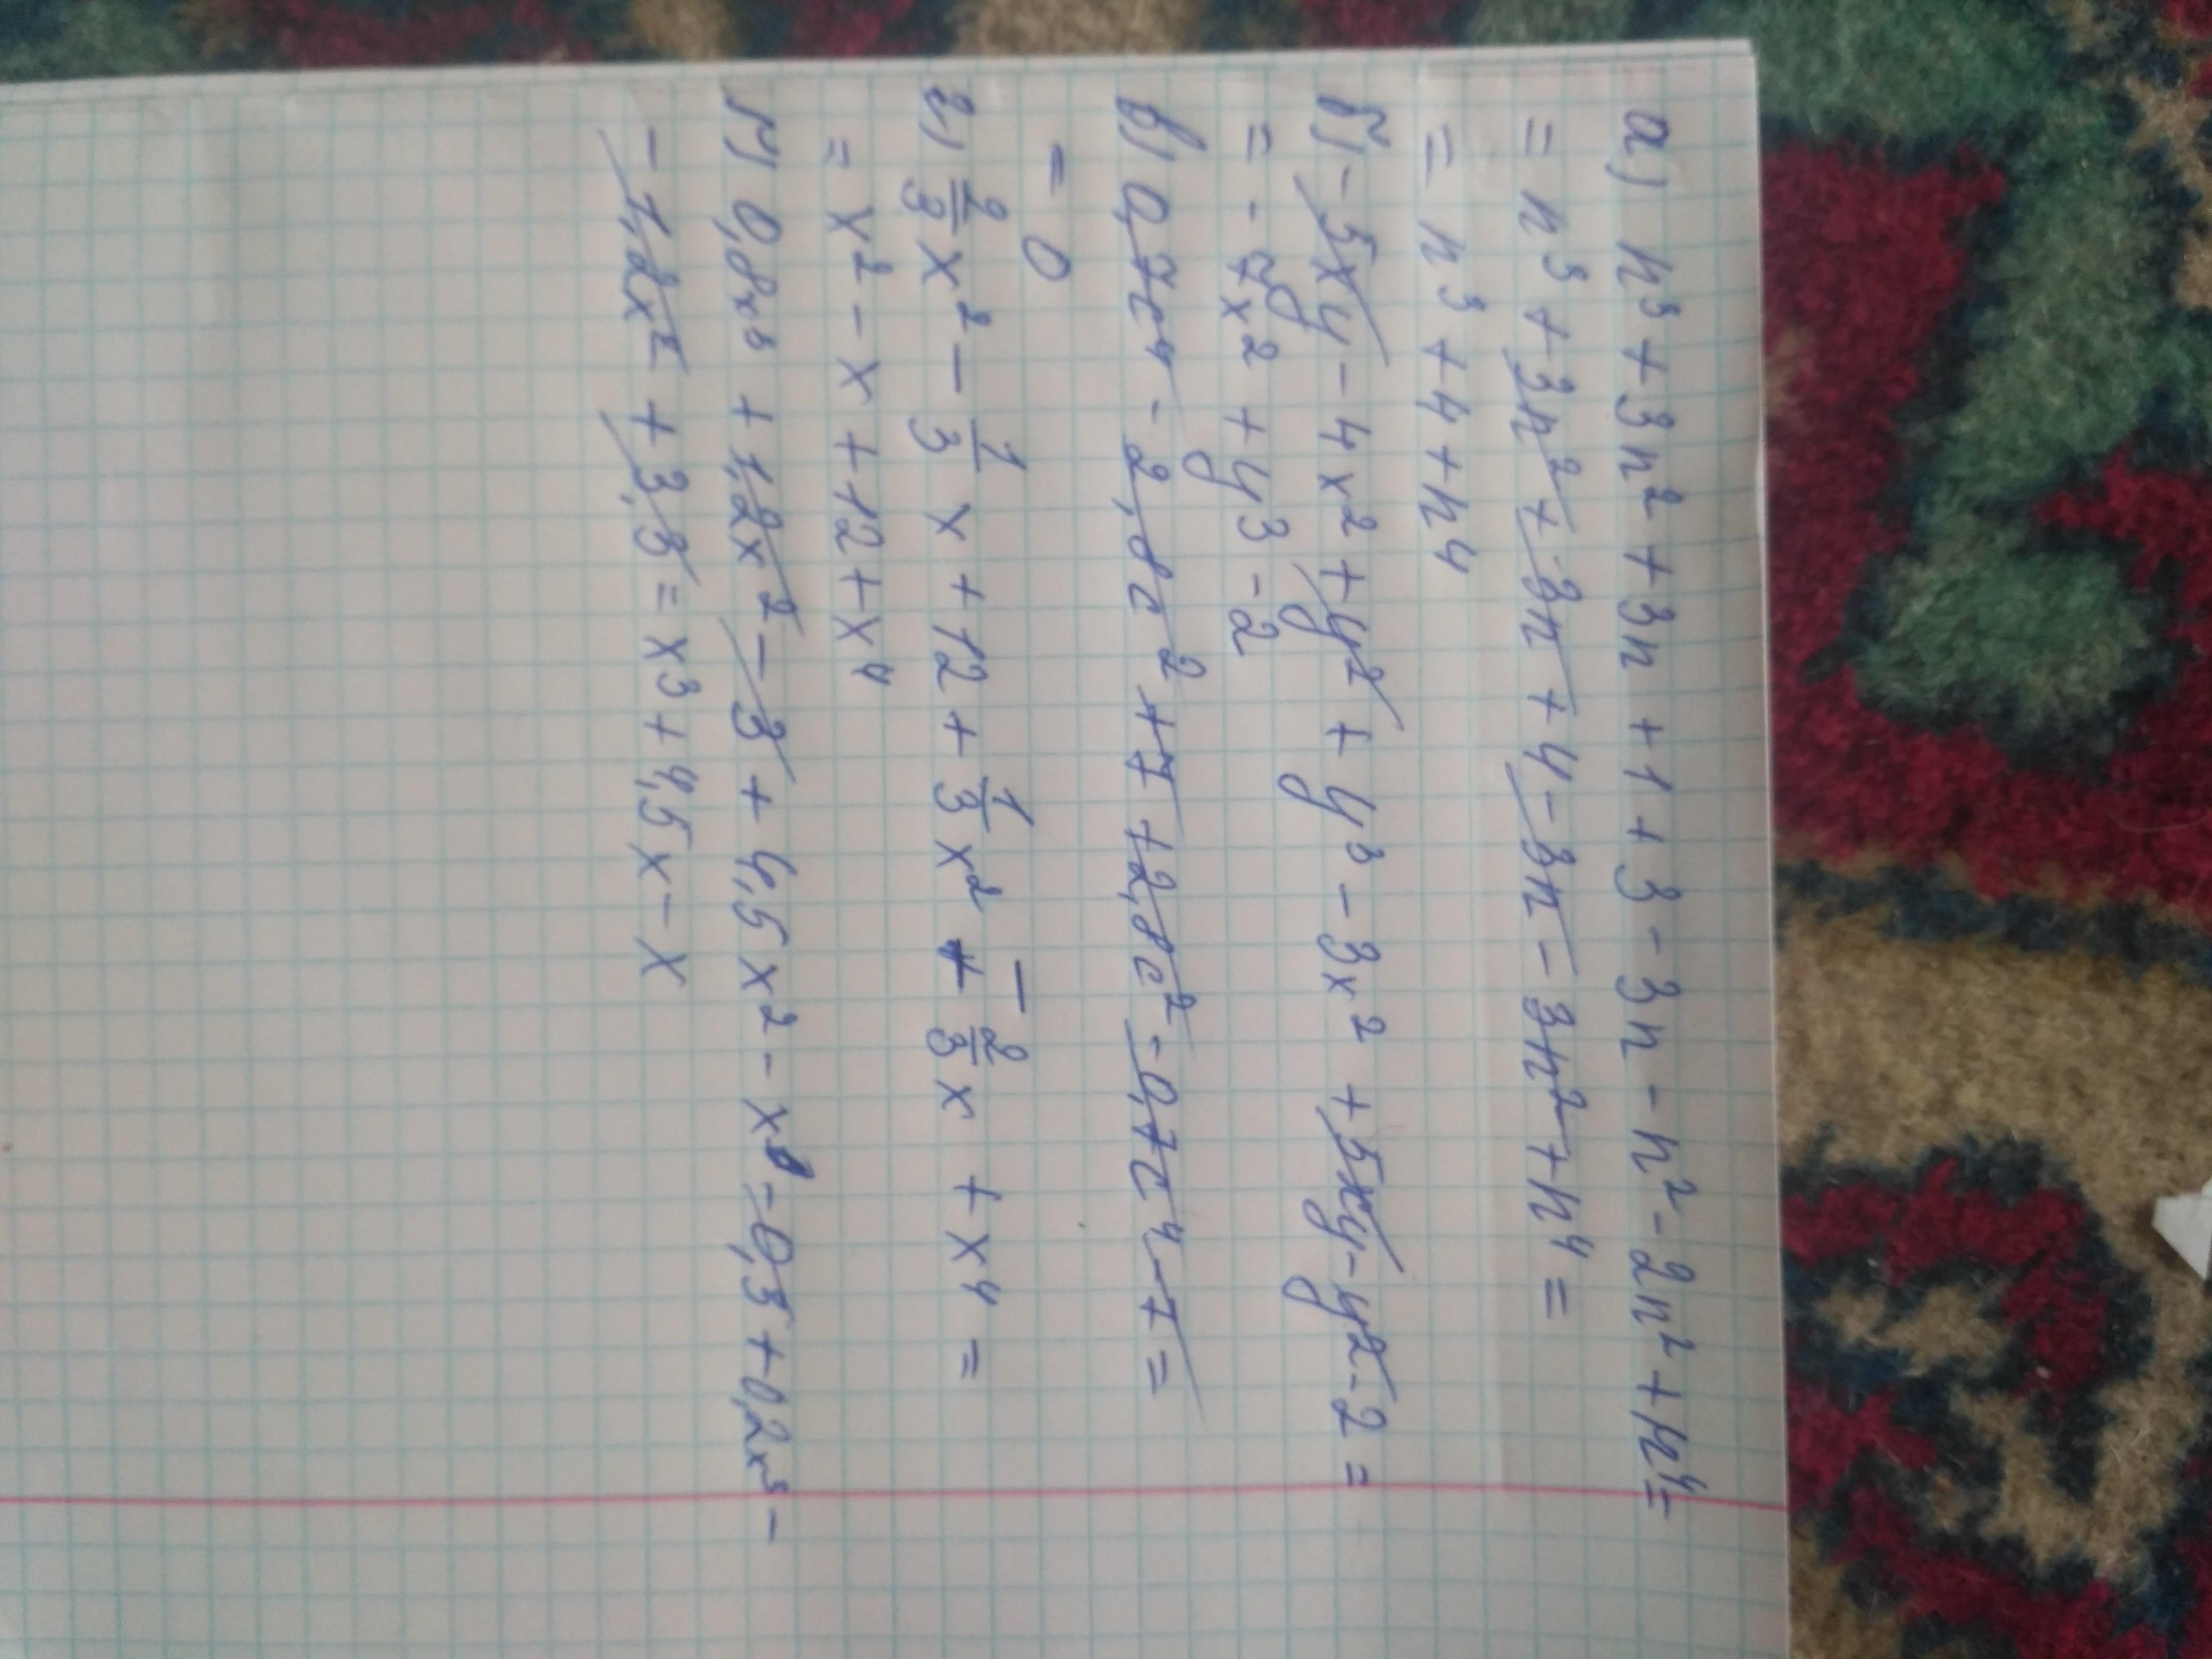 а) n³ + 3n² + 3n + 1 + 3 - 3n - n² - 2n² + n⁴ =
= n³ + 3n² + 3n + 4 - 3n - 3n² + n⁴ =
= n³ + 4 + n⁴
б) - 5xy - 4x² + y² + y³ - 3x² + 5xy - y² - 2 =
= - 7x² + y³ - 2
в) 0,7c⁴ - 2,8c² + 7 + 2,8c² - 0,7c⁴ - 7 =
= 0
г) 2/3 x² - 1/3 x + 12 + 1/3 x² - 2/3 x + x⁴ =
= x² - x + 12 + x⁴
0,8x³ + 1,2x² - 3 + 4,5x² - x - 0,5 + 0,2x³ -
- 1,2x² + 3,5 = x³ + 4,5x - x